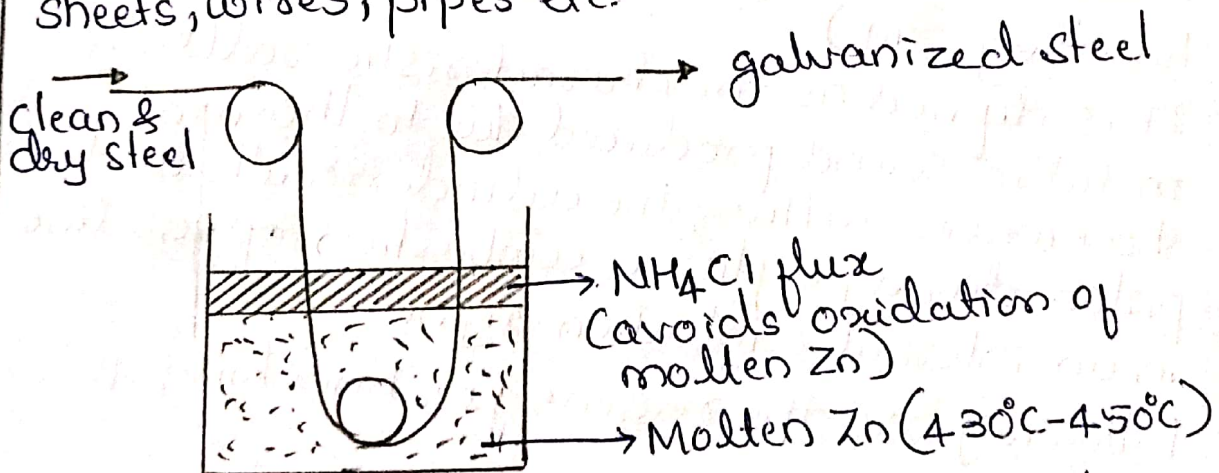 sheets, wires, pipes etc.
galvanized steel
clean &
dry steel
NH4Cl flux
(avoids oxidation of
molten Zn)
Molten Zn (430°C-450°C)